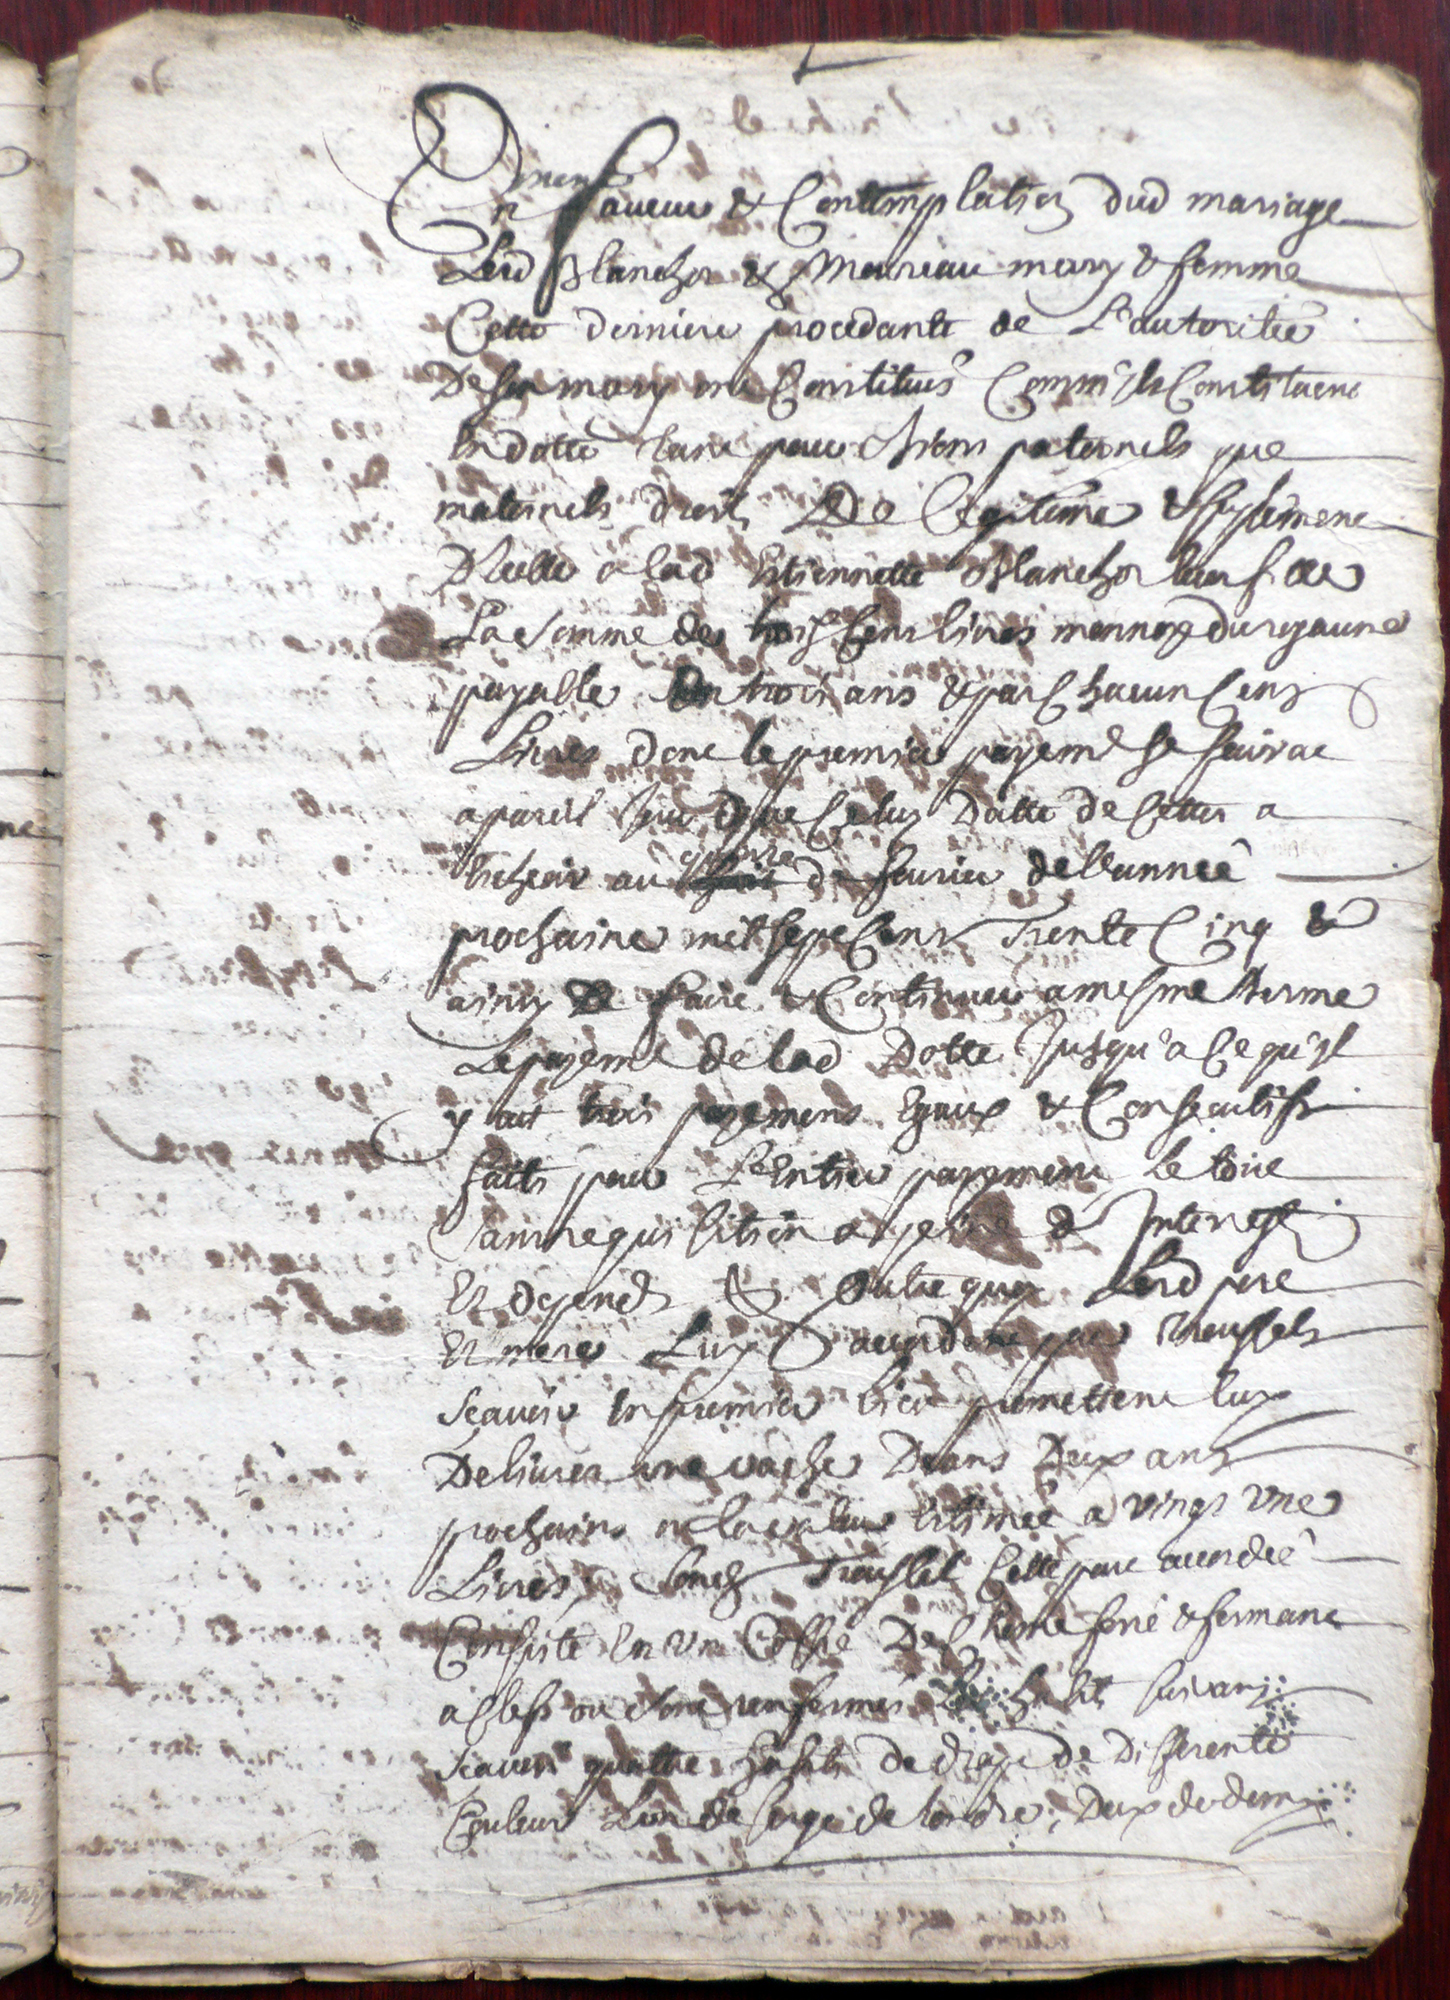 En faveur & Contemplation dud mariage
Lesd Blanchon & Mouriau mary & femme
Cette derniere procedante de L'autoritée
De son mary ont Constitués Comm'ils Constituent
En dotte tant pour biens paternels que
maternels droits De Legitime & suplement
D'icelle a lad Estiennette Blanchon leur fille
La Somme de trois Cens livres monnoye du royaume
payable En trois ans & par Chacun Cens
Livres dont le premier payemt se faira
a pareil Jour que Celuy Datte de Cettes a
Echeoir au quatre de fevrier de l'année
prochaine mil sept Cens Trente Cinq &
ainsy de faire & Continuer a mesme terme
Le payemt de lad Dotte Jusqu'a Ce qu'yl
y ait trois payemens Egaux & Consecutifs
faits pour L'Entier payement Le tout
Sans requisition a peine d'Interest
Et depends & Outre quoy Lesd pere
Et mere Luy accordent pour trousels
Scavoir En premier lieu promettent luy
Delivrer une vache Dans Deux ans
prochains de la valleur Estimée a vingt une
Livres, Lautre Trouslel Cette part accordée
Consiste En un Coffre De Chesne ferré & fermant
a Clefs ou Sont renfermés Les habits suivants
Scavoir quattre habits de drap de Differente
Couleur L'un de serge de londre, Deux de demy